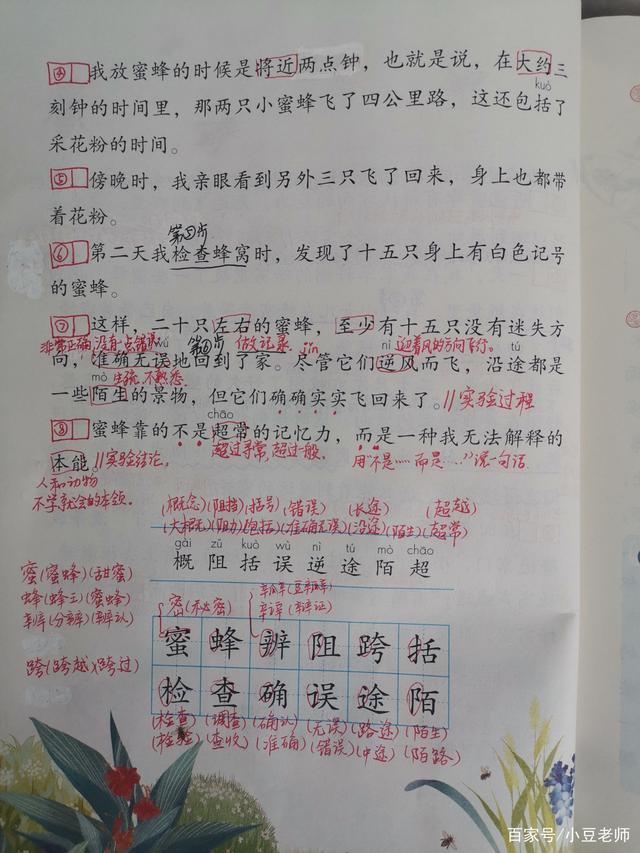 ④我放蜜蜂的时候是将近两点钟，也就是说，在大约三
kuò
刻钟的时间里，那两只小蜜蜂飞了四公里路，这还包括了
采花粉的时间。
⑤傍晚时，我亲眼看到另外三只飞了回来，身上也都带
着花粉。
⑥第二天我检查蜂窝时，发现了十五只身上有白色记号
的蜜蜂。
⑦这样，二十只左右的蜜蜂，至少有十五只没有迷失方
非常正确，没有一点错误 wù 做记录 nì 迎着风的方向飞行。 tú
向，准确无误地回到了家。尽管它们逆风而飞，沿途都是
mò 生疏，不熟悉
一些陌生的景物，但它们确确实实飞回来了。//实验过程
chāo
⑧蜜蜂靠的不是超常的记忆力，而是一种我无法解释的
超过寻常，超过一般。 用“不是……而是……”说一句话
本能 //实验结论。
人和动物
不学就会的本领。
(概念)(阻挡)(括号)(错误) (长途) (超越)
(大概)(阻力)(包括)(准确无误)(沿途)(陌生)(超常)
gài zǔ kuò wù nì tú mò chāo
概 阻 括 误 逆 途 陌 超
蜜(蜜蜂)(甜蜜)
蜂(蜂王)(蜜蜂)
辨(分辨)(辨认)
跨(跨越)(跨过)
密(秘密)
辩(辩证)
蜜 蜂 辨 阻 跨 括
检 查 确 误 途 陌
(检查)(调查)(确认)(无误)(路途)(陌生)
(检验)(查收)(准确)(错误)(中途)(陌路)
百家号/小豆老师